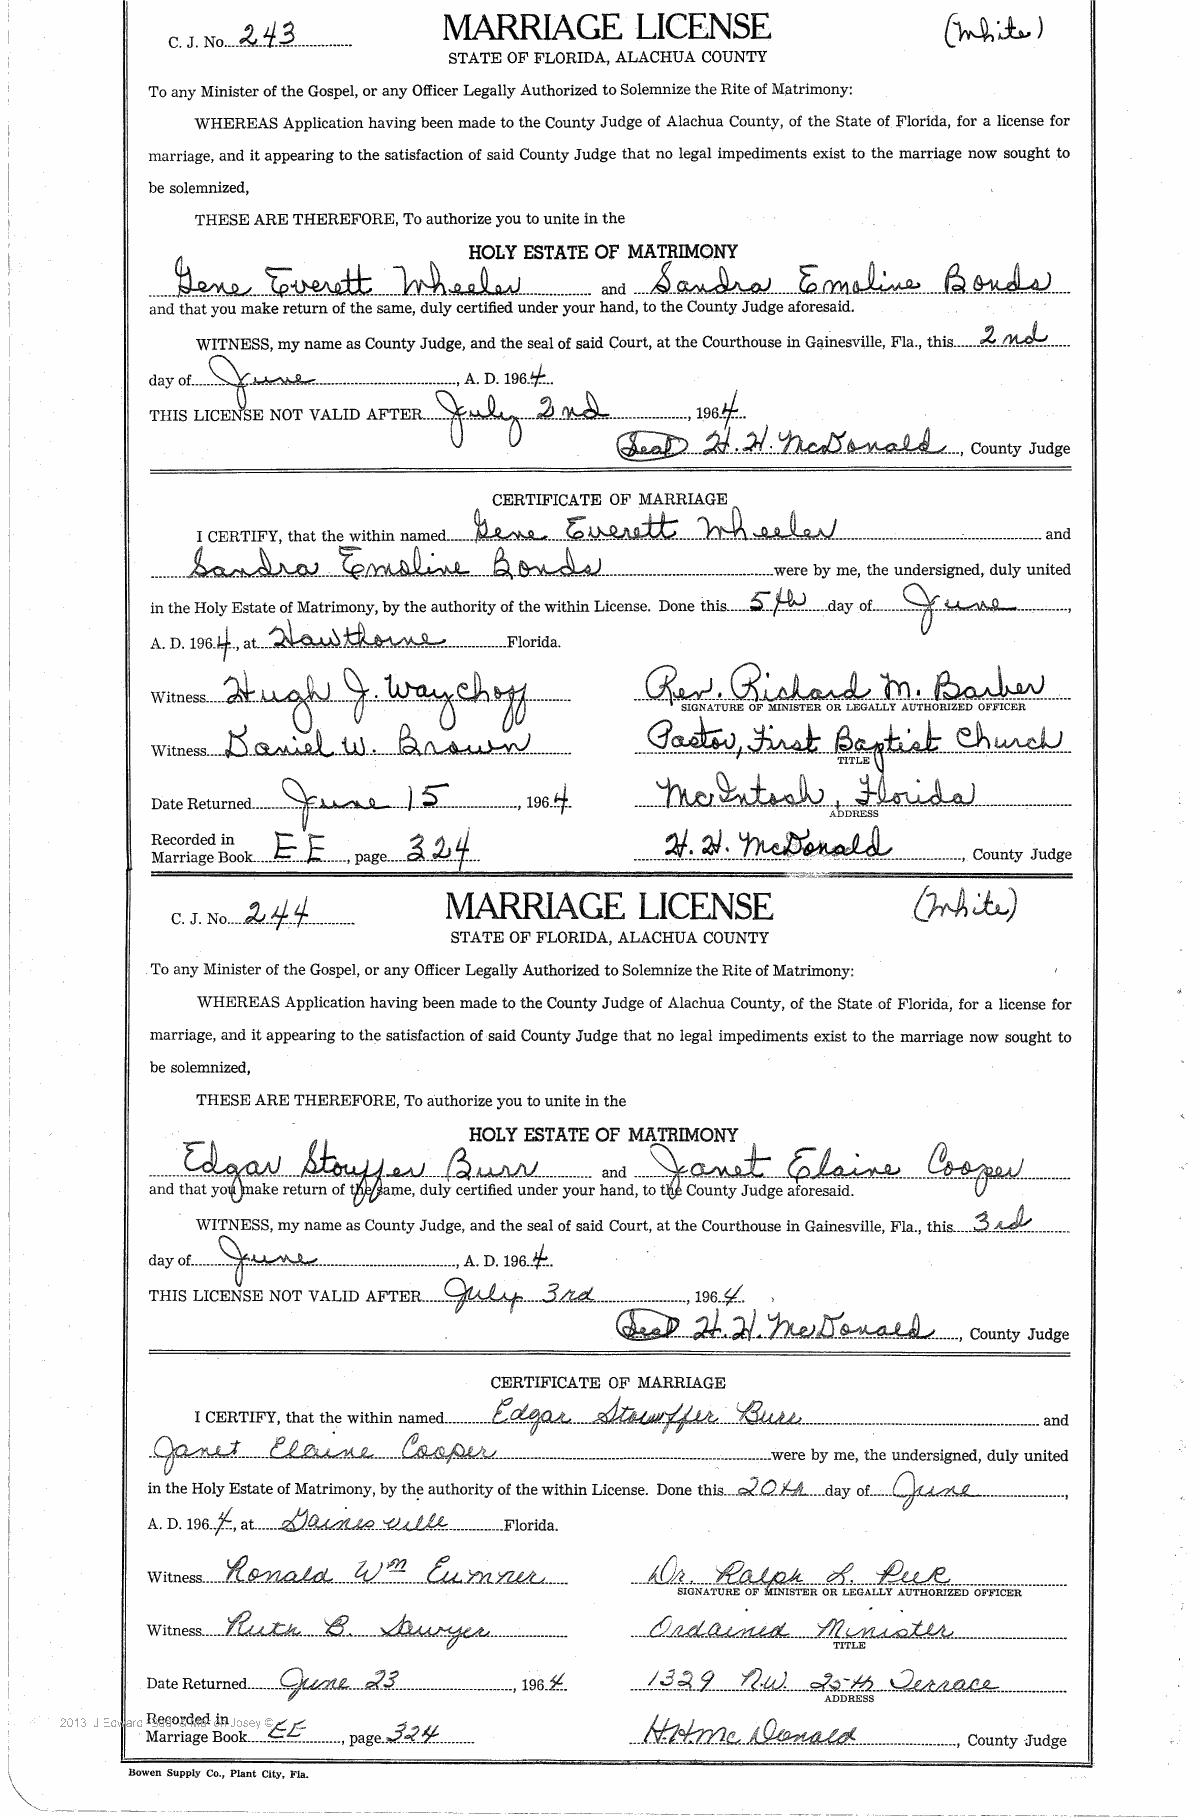 C. J. No. 243 MARRIAGE LICENSE (White)
STATE OF FLORIDA, ALACHUA COUNTY
To any Minister of the Gospel, or any Officer Legally Authorized to Solemnize the Rite of Matrimony:
WHEREAS Application having been made to the County Judge of Alachua County, of the State of Florida, for a license for
marriage, and it appearing to the satisfaction of said County Judge that no legal impediments exist to the marriage now sought to
be solemnized,
THESE ARE THEREFORE, To authorize you to unite in the
HOLY ESTATE OF MATRIMONY
Gene Everett Wheeler and Sandra Emoline Bonds
and that you make return of the same, duly certified under your hand, to the County Judge aforesaid.
WITNESS, my name as County Judge, and the seal of said Court, at the Courthouse in Gainesville, Fla., this 2nd
day of June, A. D. 1964.
THIS LICENSE NOT VALID AFTER July 2nd, 1964.
(Seal) H. H. McDonald, County Judge
CERTIFICATE OF MARRIAGE
I CERTIFY, that the within named Gene Everett Wheeler and
Sandra Emoline Bonds were by me, the undersigned, duly united
in the Holy Estate of Matrimony, by the authority of the within License. Done this 5th day of June,
A. D. 1964, at Hawthorne Florida.
Witness Hugh J. Waychoff Rev. Richard M. Barber
SIGNATURE OF MINISTER OR LEGALLY AUTHORIZED OFFICER
Witness Daniel W. Brown Pastor, First Baptist Church
TITLE
Date Returned June 15, 1964 McIntosh, Florida
ADDRESS
Recorded in
Marriage Book EE, page 324 H. H. McDonald, County Judge
C. J. No. 244 MARRIAGE LICENSE (White)
STATE OF FLORIDA, ALACHUA COUNTY
To any Minister of the Gospel, or any Officer Legally Authorized to Solemnize the Rite of Matrimony:
WHEREAS Application having been made to the County Judge of Alachua County, of the State of Florida, for a license for
marriage, and it appearing to the satisfaction of said County Judge that no legal impediments exist to the marriage now sought to
be solemnized,
THESE ARE THEREFORE, To authorize you to unite in the
HOLY ESTATE OF MATRIMONY
Edgar Stouffer Burr and Janet Elaine Cooper
and that you make return of the same, duly certified under your hand, to the County Judge aforesaid.
WITNESS, my name as County Judge, and the seal of said Court, at the Courthouse in Gainesville, Fla., this 3rd
day of June, A. D. 1964.
THIS LICENSE NOT VALID AFTER July 3rd, 1964.
(Seal) H. H. McDonald, County Judge
CERTIFICATE OF MARRIAGE
I CERTIFY, that the within named Edgar Stouffer Burr and
Janet Elaine Cooper were by me, the undersigned, duly united
in the Holy Estate of Matrimony, by the authority of the within License. Done this 20th day of June,
A. D. 1964, at Gainesville Florida.
Witness Ronald Wm Eumner Dr. Ralph L. Peek
SIGNATURE OF MINISTER OR LEGALLY AUTHORIZED OFFICER
Witness Ruth B. Sawyer Ordained Minister
TITLE
Date Returned June 23, 1964 1329 N.W. 25th Terrace
ADDRESS
2013 J Edward Josey ©
Recorded in
Marriage Book EE, page 324 H. H. McDonald, County Judge
Bowen Supply Co., Plant City, Fla.